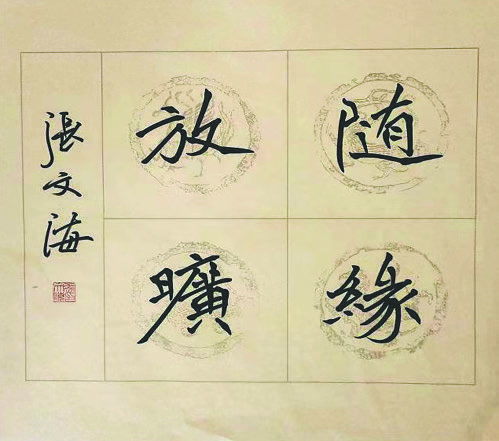 随緣
放曠
張文海